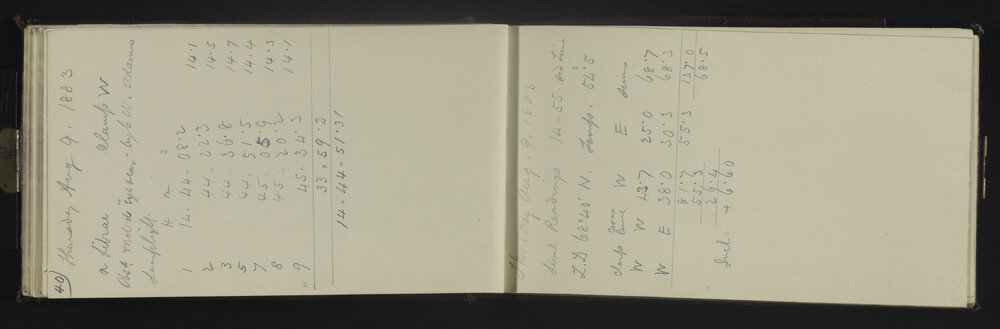 40) Thursday Aug 9. 1883
α Librae Clamp W
Obsd Method "Eye & ear" by C.W. Adams
Lamplight
H m s
1 14.44.08.2 14.1
2 44.22.3 14.5
3 44.36.8 14.7
5 44.51.5 14.4
7 45.05.9 14.3
8 45.20.2 14.1
9 45.34.3
33.59.2
14.44.51.31
Thursday Aug. 9. 1883
Level Readings 14.55. Sid Time
Z.D 68°40' N. Temp. 54°.5
Lamp W E Sums
W W 43.7 25.0 68.7
W E 38.0 30.3 68.3
81.7 55.3 137.0
55.3 68.5
26.4
Incl = + 6.60